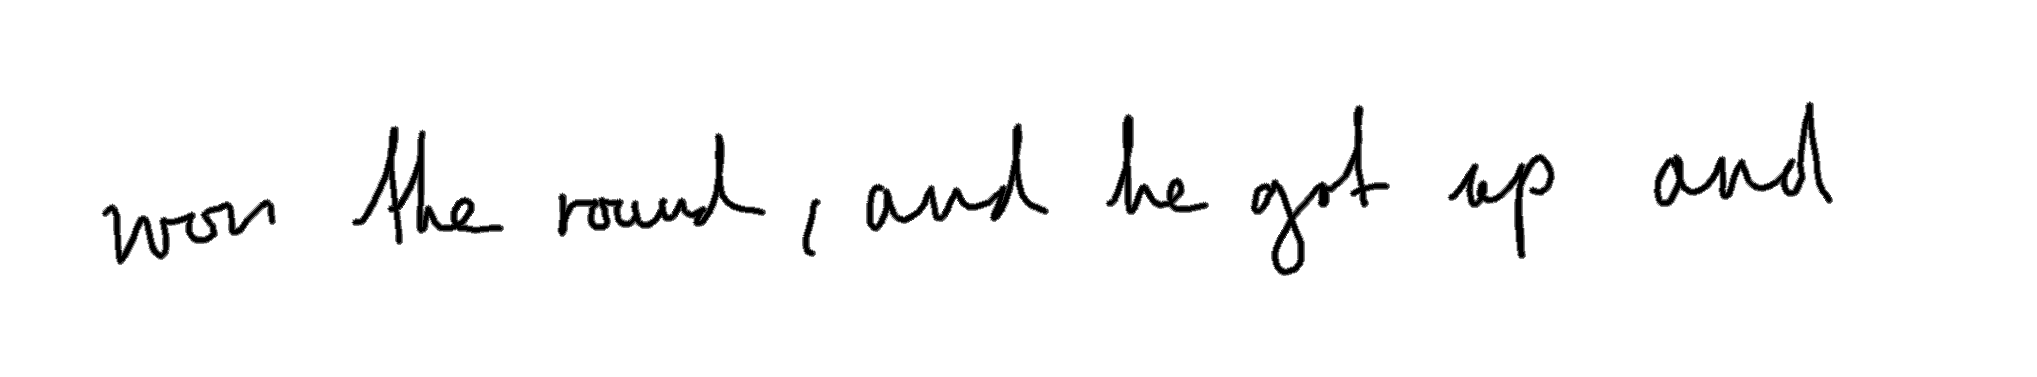 won the round, and he got up and